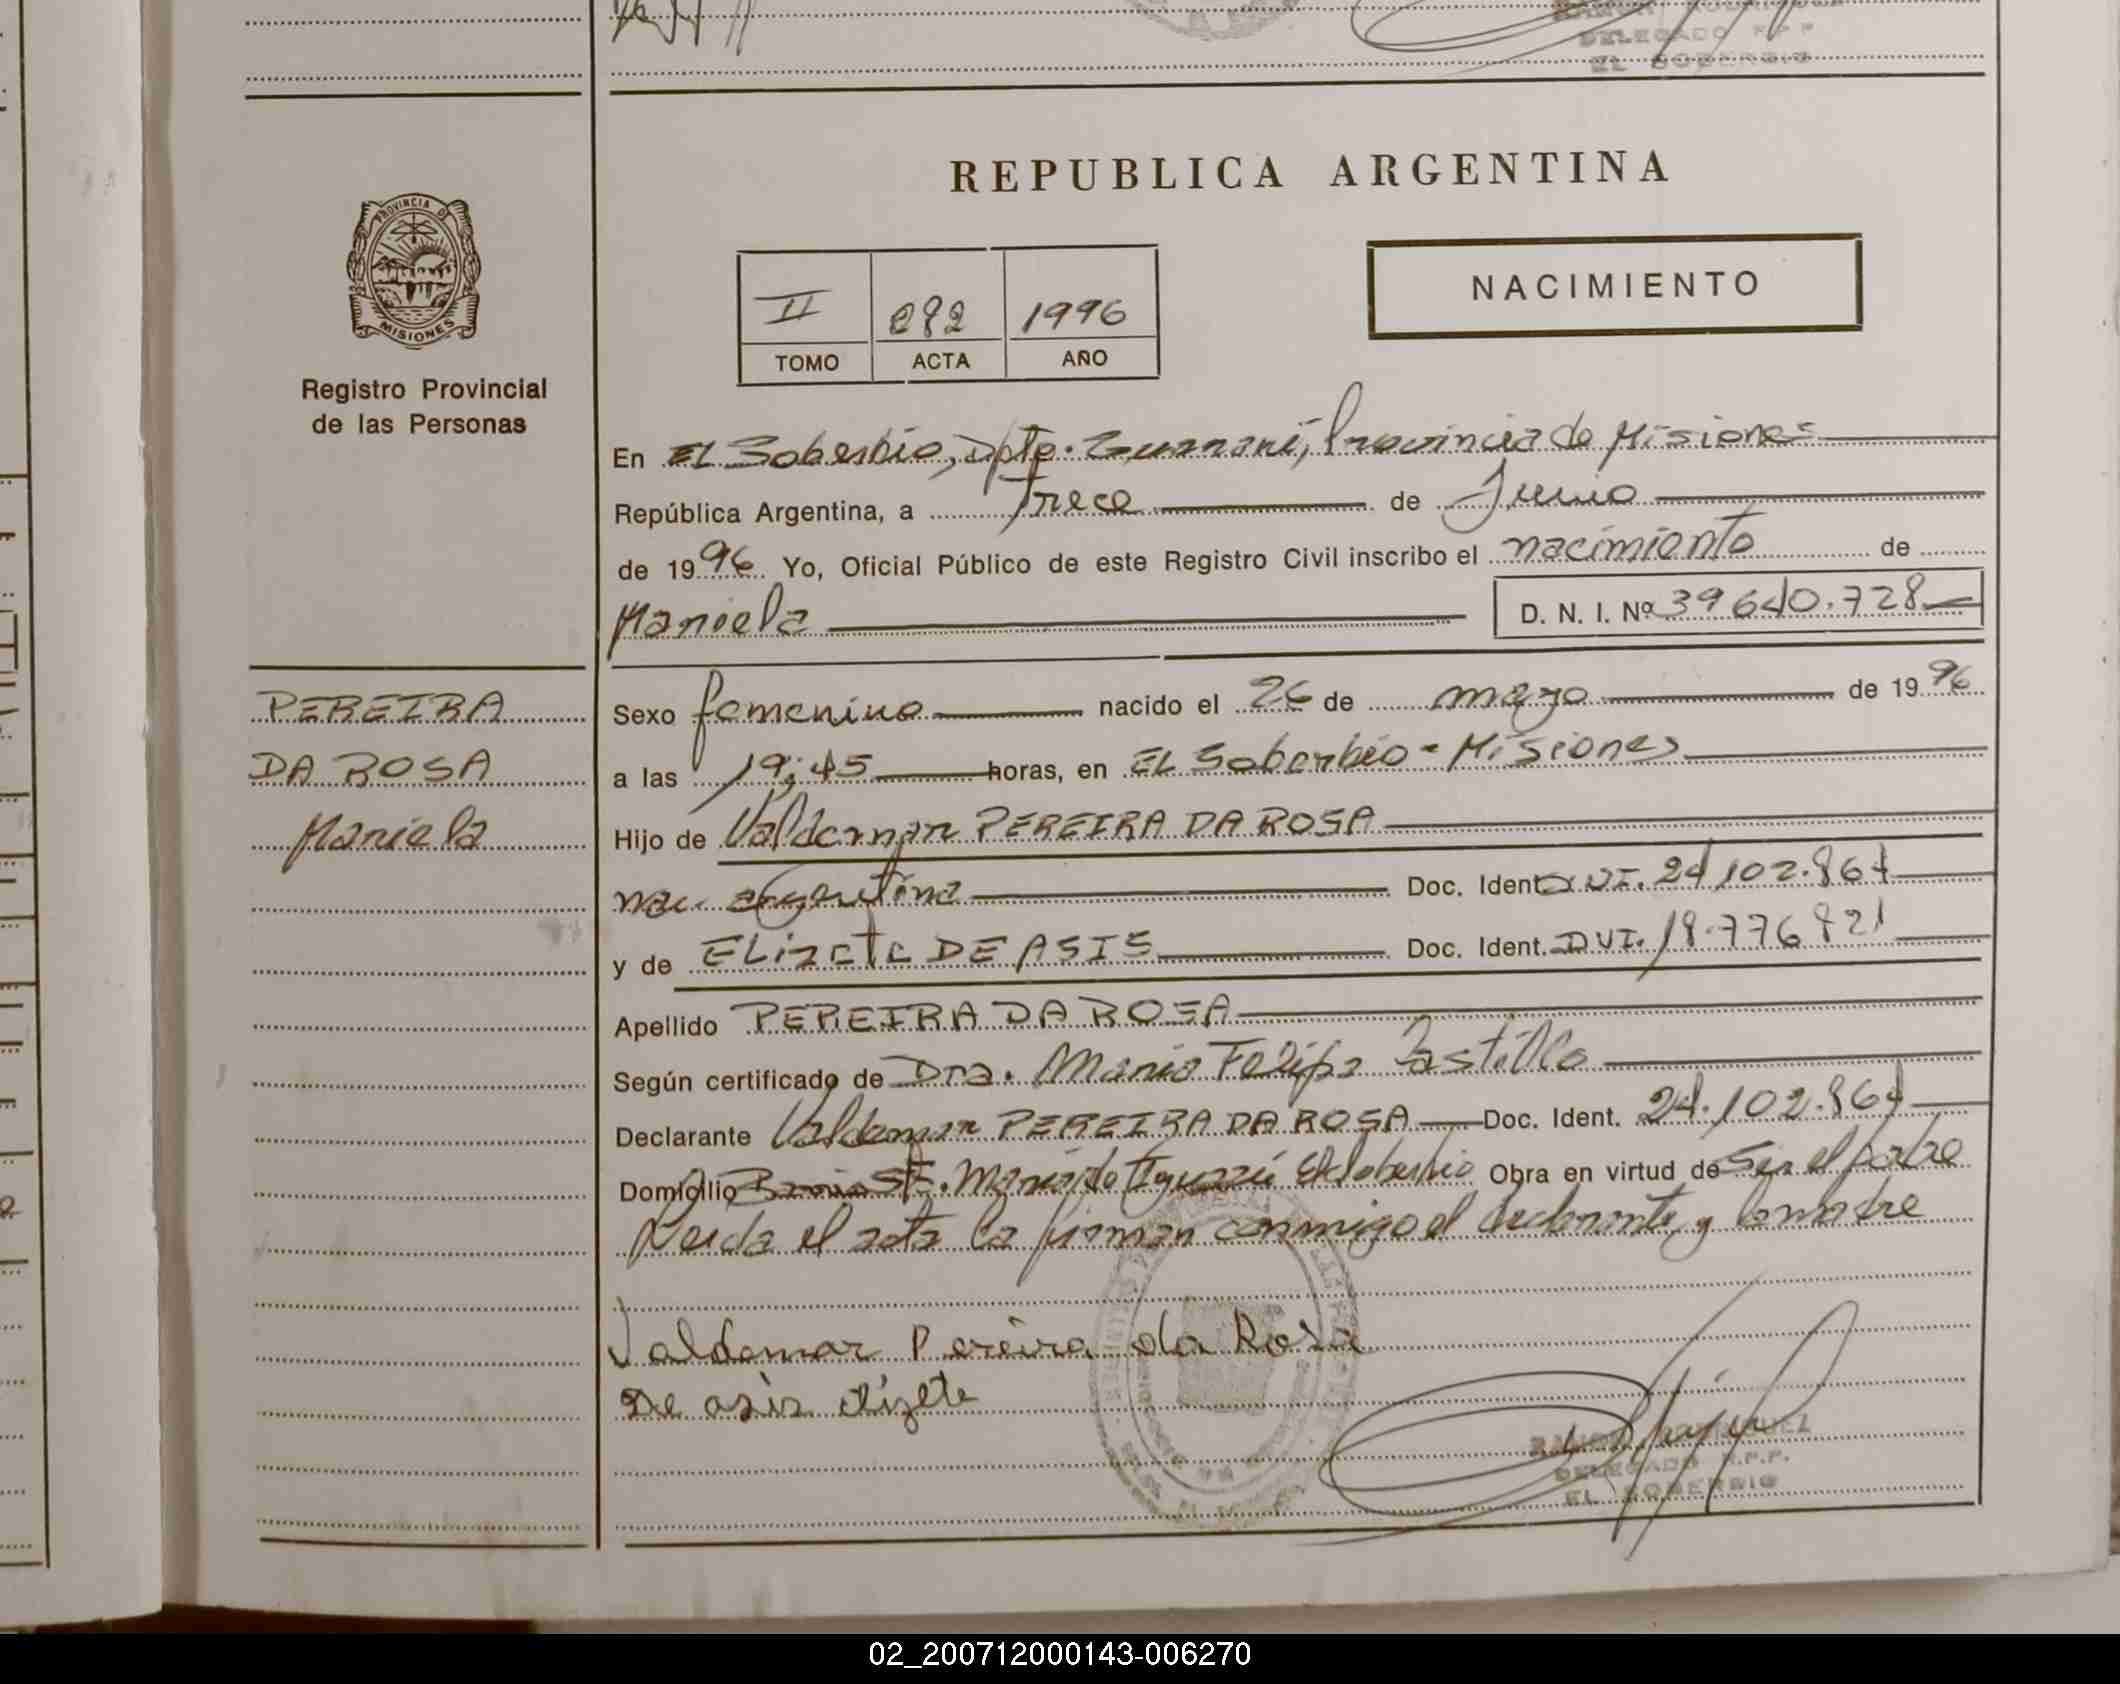 DELEGADO R.P.P.
EL SOBERBIO
REPUBLICA ARGENTINA
PROVINCIA DE
MISIONES
Registro Provincial
de las Personas
II 282 1996
TOMO ACTA AÑO
NACIMIENTO
En EL Soberbio, Dpto. Guaraní, Provincia de Misiones
República Argentina, a Trece de Junio
de 1996 Yo, Oficial Público de este Registro Civil inscribo el nacimiento de
Mariela D. N. I. Nº 39640.728
PEREIRA
DA ROSA
Mariela
Sexo femenino nacido el 26 de mayo de 1996
a las 19:45 horas, en EL Soberbio - Misiones
Hijo de Valdemar PEREIRA DA ROSA
nac. argentina Doc. Ident. DNI. 24102.864
y de ELizete DE ASIS Doc. Ident. DNI. 18.776821
Apellido PEREIRA DA ROSA
Según certificado de Dra. Maria Felipa Castillo
Declarante Valdemar PEREIRA DA ROSA Doc. Ident. 24.102.864
Domicilio Barrio St. Maria do Iguazú El Soberbio Obra en virtud de Ser el padre
Leida el acta la firman conmigo el declarante y la madre
Valdemar Pereira da Rosa
De asis elizete
RAMON RODRIGUEZ
DELEGADO R.P.P.
EL SOBERBIO
02_200712000143-006270